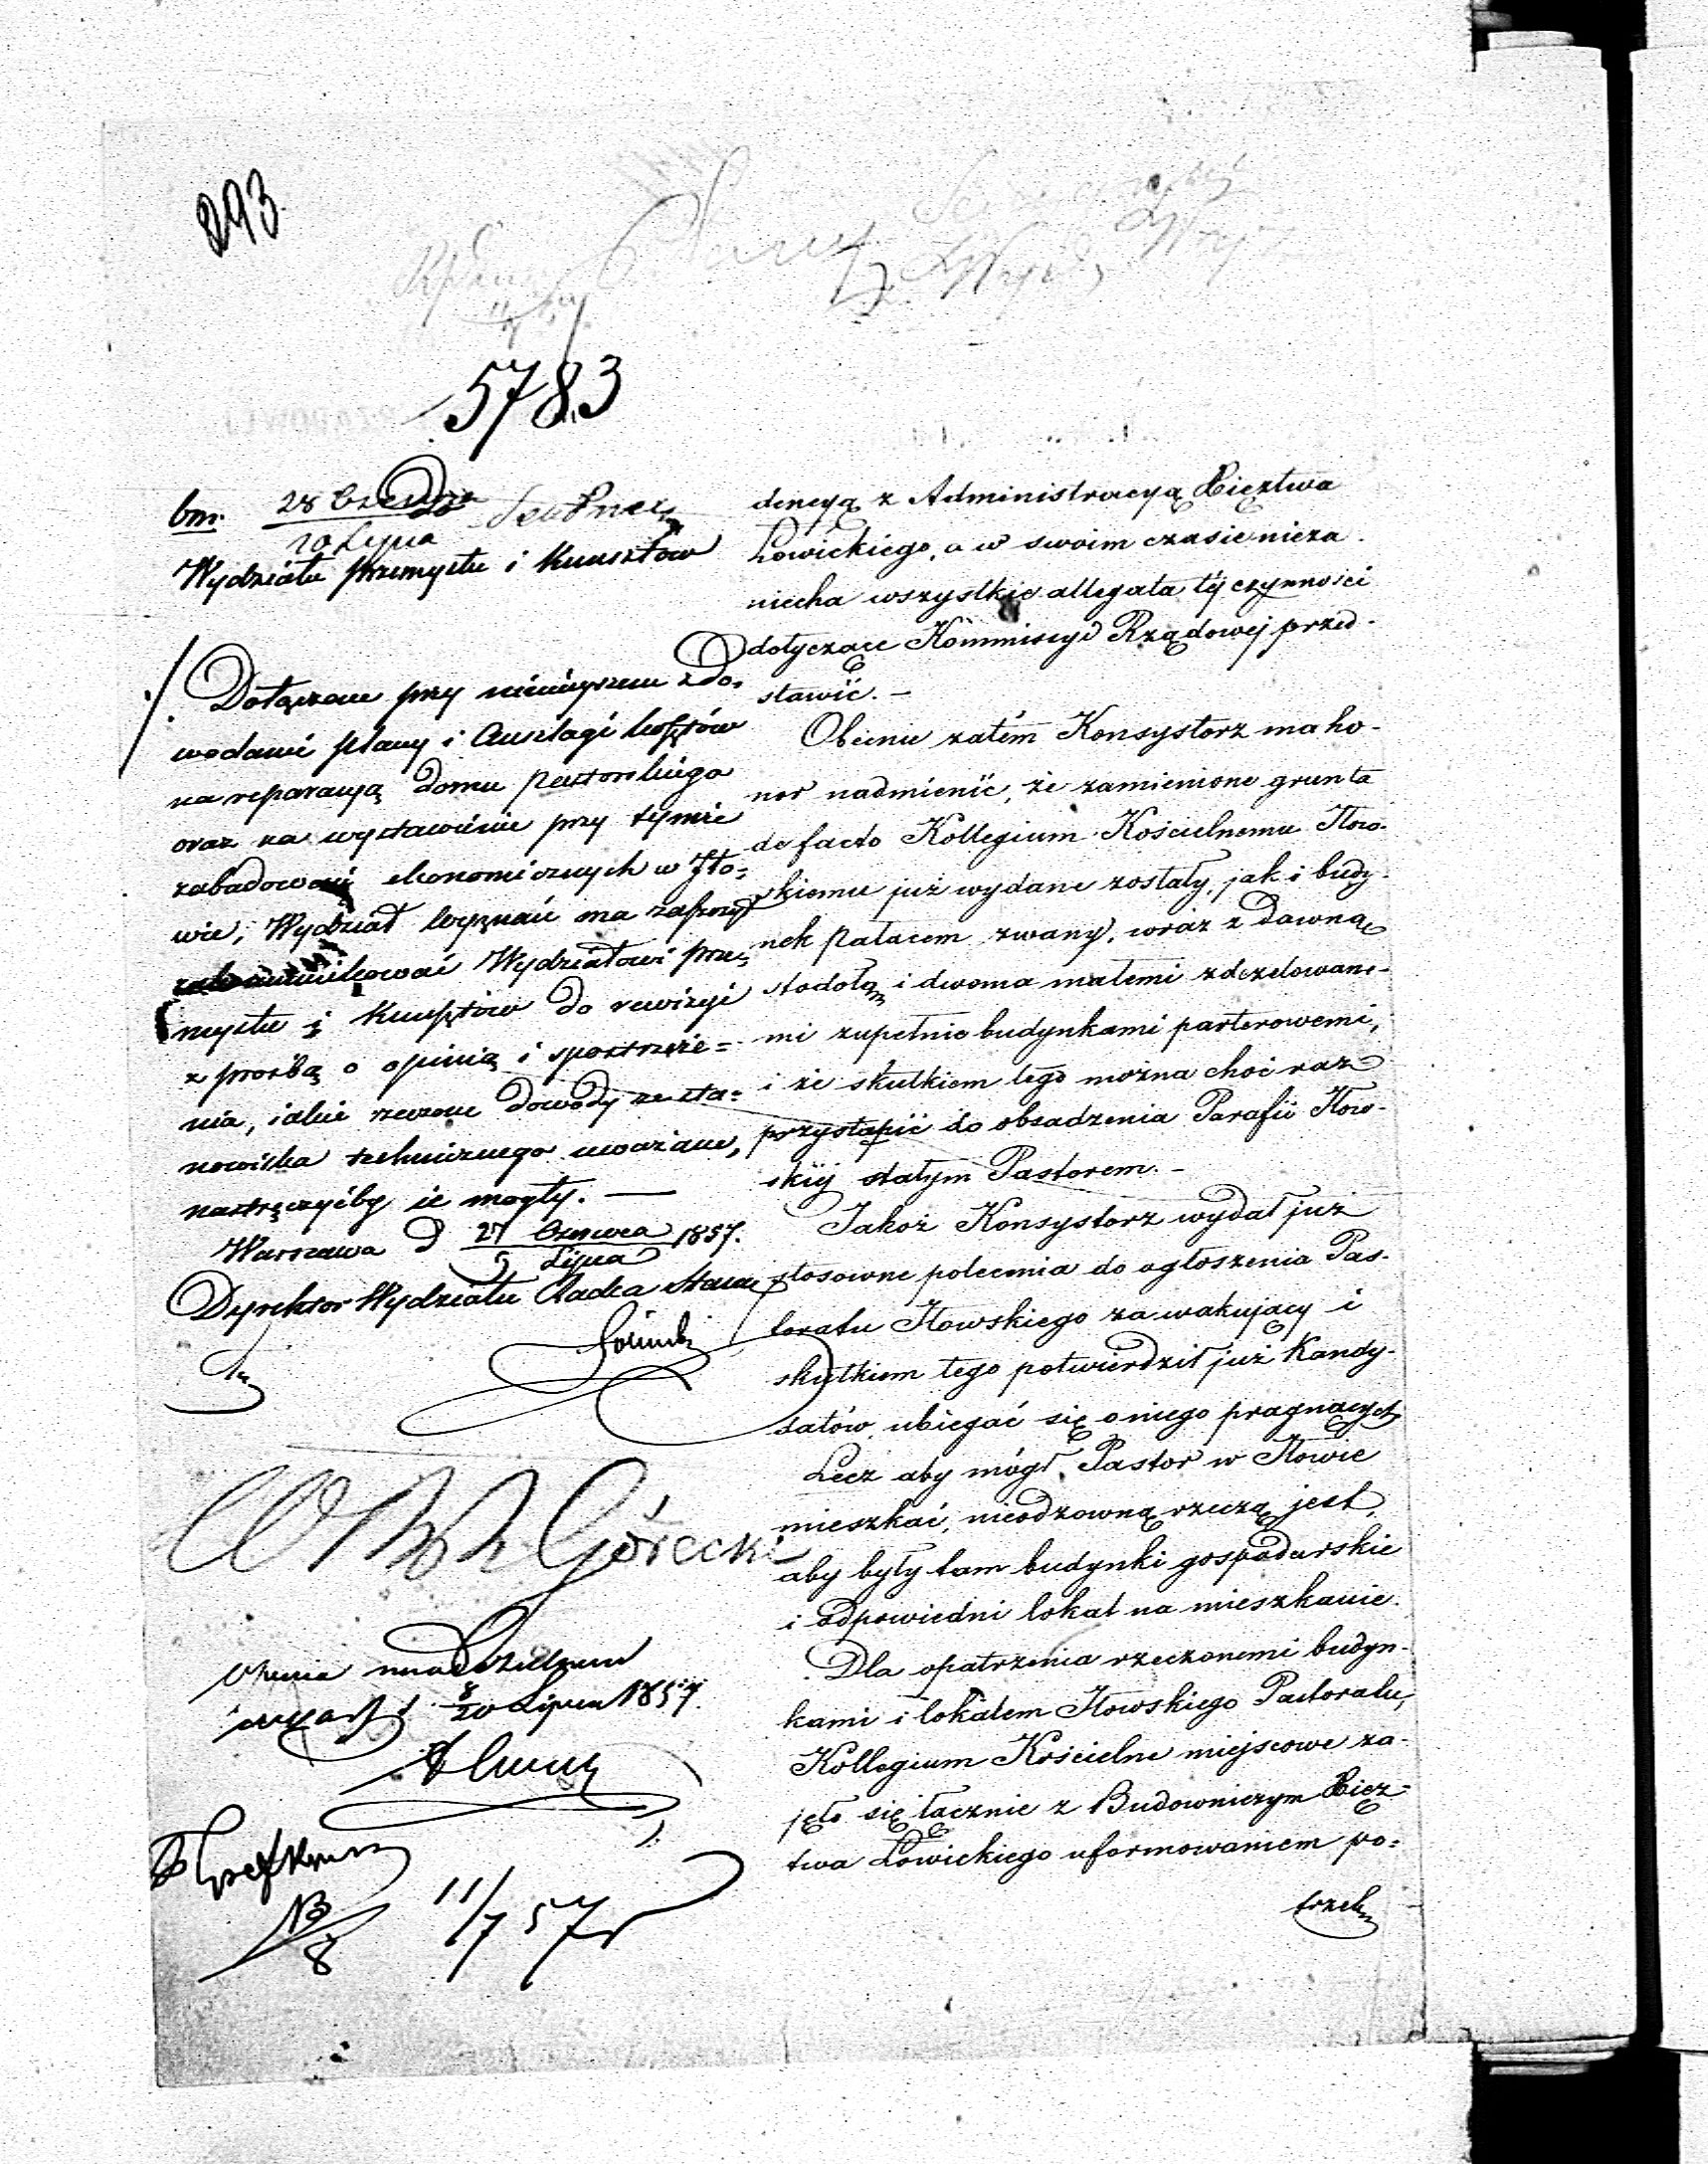 293
5783
bm. 28 Czerwca
10 Lipca
Do
Wydziału przemysłu i Kunsztów
Dołączone przy niniejszem z do-
wodami plany i Anszlagi kosztów
na reparacyą domu pastorskiego
oraz na wystawienie przy tymże
zabudowań ekonomicznych w Iło-
wie, Wydział Wyznań ma zaszczyt
zakomunikować Wydziałowi prze-
mysłu i Kunsztów do rewizyi
z prośbą o opinią i spostrzeże-
nia, jakie rzeczone dowody ze sta-
nowiska technicznego uważane,
nastręczyćby ie mogły. —
Warszawa d 27 Czerwca 1857.
9 Lipca
Dyrektor Wydziału Radca Stanu
Górecki
8/20 Lipca 1857.
13/8
11/7 57
dencyą z Administracyą Xięztwa
Łowickiego, a w swoim czasie nieza-
niecha wszystkie allegata téj czynności
dotyczące Kommissyi Rządowej przed-
stawić. —
Obecnie zatém Konsystorz ma ho-
nor nadmienić, że zamienione grunta
de facto Kollegium Kościelnemu Iłow-
skiemu już wydane zostały, jak i budy-
nek Pałacem zwany, wraz z dawną
stodołą i dwoma małemi zdezelowane-
mi zupełnie budynkami parterowemi,
i że skutkiem tego można choć raz
przystąpić do obsadzenia Parafii Iłow-
skiéj stałym Pastorem. —
Jakoż Konsystorz wydał już
stosowne polecenia do ogłoszenia Pas-
toratu Iłowskiego za wakujący i
skutkiem tego potwierdził już Kandy-
datów, ubiegać się o niego pragnących
Lecz aby mógł Pastor w Iłowie
mieszkać, nieodzowną rzeczą jest,
aby były tam budynki gospodarskie
i odpowiedni lokal na mieszkanie.
Dla opatrzenia rzeczonemi budyn-
kami i lokalem Iłowskiego Pastoratu,
Kollegium Kościelne miejscowe za-
jęło się łącznie z Budowniczym Xięz-
twa Łowickiego uformowaniem po-
trzeb